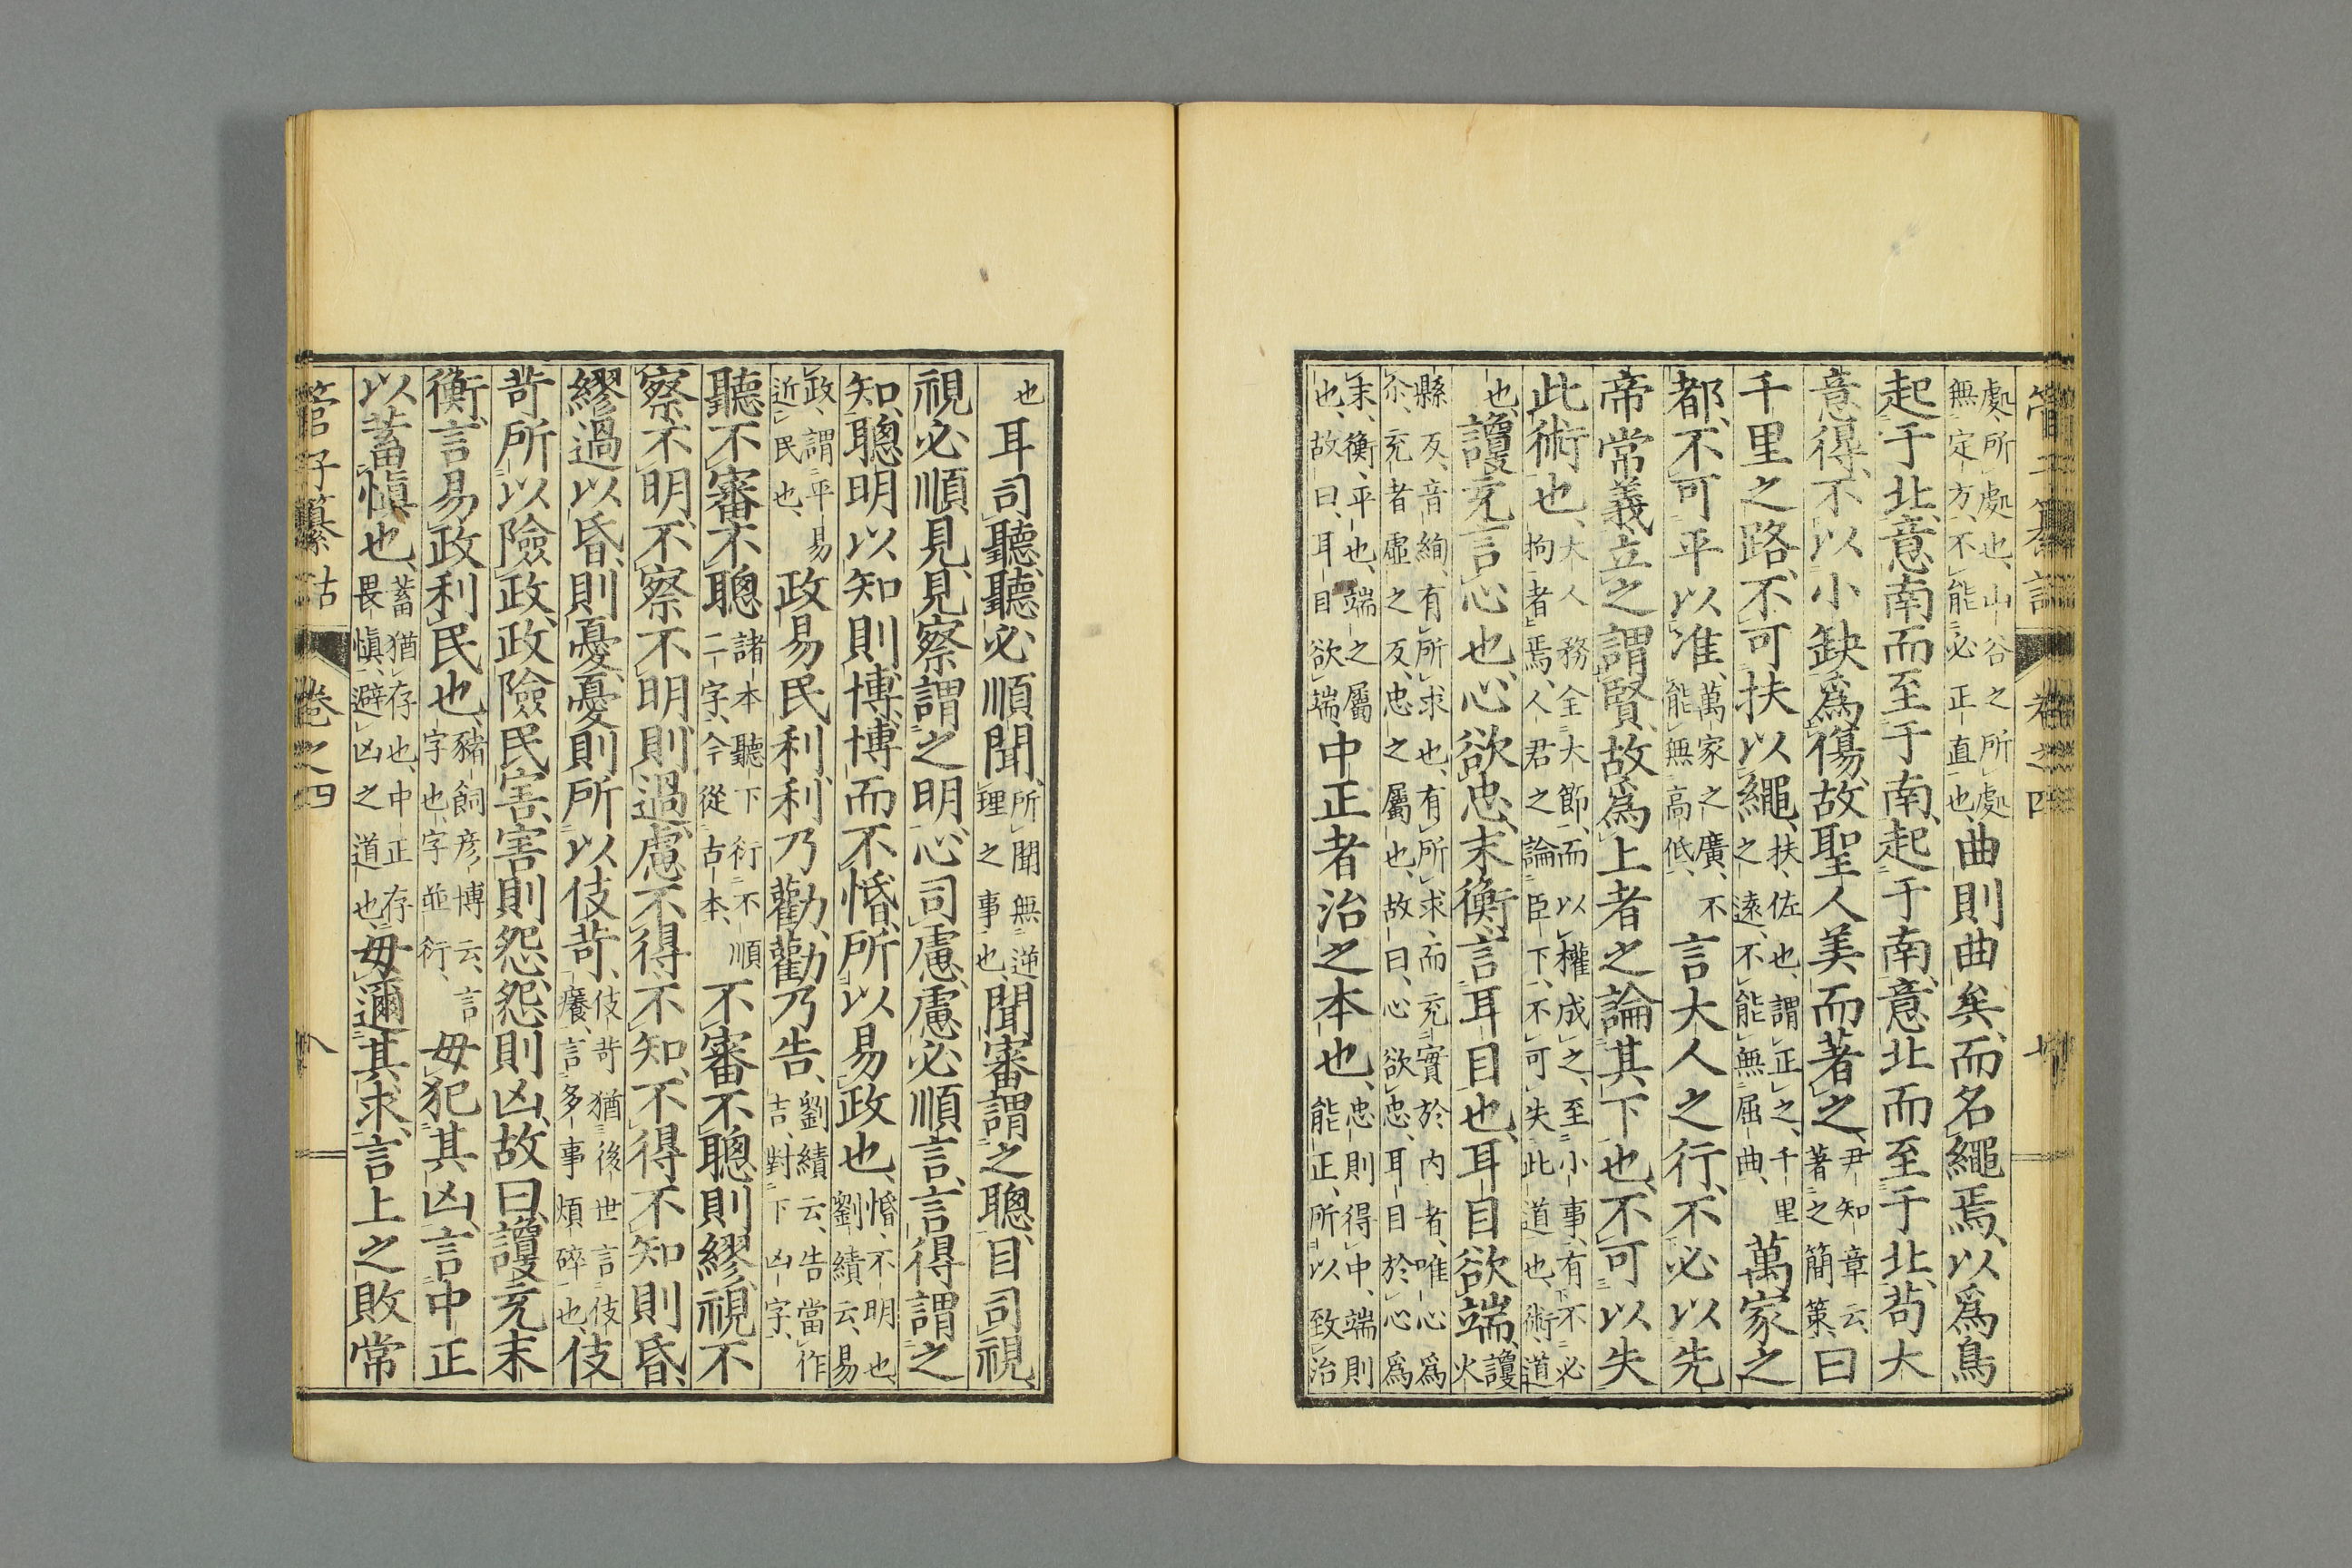 管子纂詁 卷之四
處、所處也、山谷之所處、無定方、不能必正直也、曲則曲矣、而名繩焉、以爲鳥
起于北、意南而至于南、起于南、意北而至于北、苟大
意得、不以小缺爲傷、故聖人美而著之、尹知章云、著之簡策、曰
千里之路、不可扶以繩、扶、佐也、謂正之、千里之遠、不能無屈曲、萬家之
都、不可平以准、萬家之廣、不能無高低、言大人之行、不必以先
帝常、義立之謂賢、故爲上者之論其下也、不可以失
此術也、大人務全大節、而以權成之、至小事、有不必拘者焉、人君之論臣下、不可失此道也、術、道
也、讂充言心也、心欲忠、末衡言耳目也、耳目欲端、讂火
縣反、音絢、有所求也、有所求、而充實於內者、唯心爲
尒、充者虛之反、忠之屬也、故曰、心欲忠、耳目於心爲
末、衡、平也、端之屬也、故曰、耳目欲端、中正者治之本也、忠則得中、端則能正、所以致治
也耳司聽、聽必順聞、所聞無逆理之事也、聞審謂之聰、目司視、
視必順見、見察謂之明、心司慮、慮必順言、言得謂之
知、聰明以知則博、博而不惛、所以易政也、惛、不明也、劉績云、易
政、謂平易近民也、政易民利、利乃勸、勸乃告、劉績云、告當作吉、對下凶字、
聽不審不聰諸本聽下衍不順二字、今從古本、不審不聰則繆、視不
察不明、不察不明則過、慮不得不知、不得不知則昏、
繆過以昏、則憂、憂則所以伎苛、伎苛猶後世言伎癢、言多事煩碎也、伎
苛所以險政、政險民害、害則怨、怨則凶、故曰、讂充末
衡、言易政利民也、豬飼彦博云、言字也、字並衍、毋犯其凶、言中正
以蓄愼也、蓄猶存也、中正存畏愼、避凶之道也、毋邇其求、言上之敗常
管子纂詁 卷之四 八